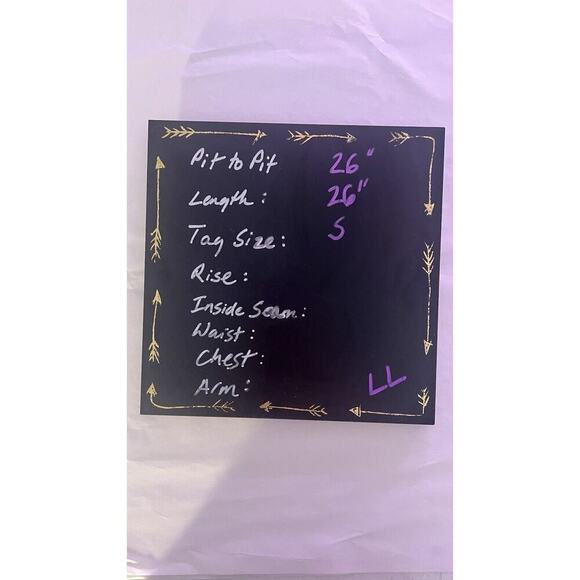 Pit to Pit 26"
Length: 26"
Tag Size: S
Rise:
Inside Seam:
Waist:
Chest:
Arm:
LL